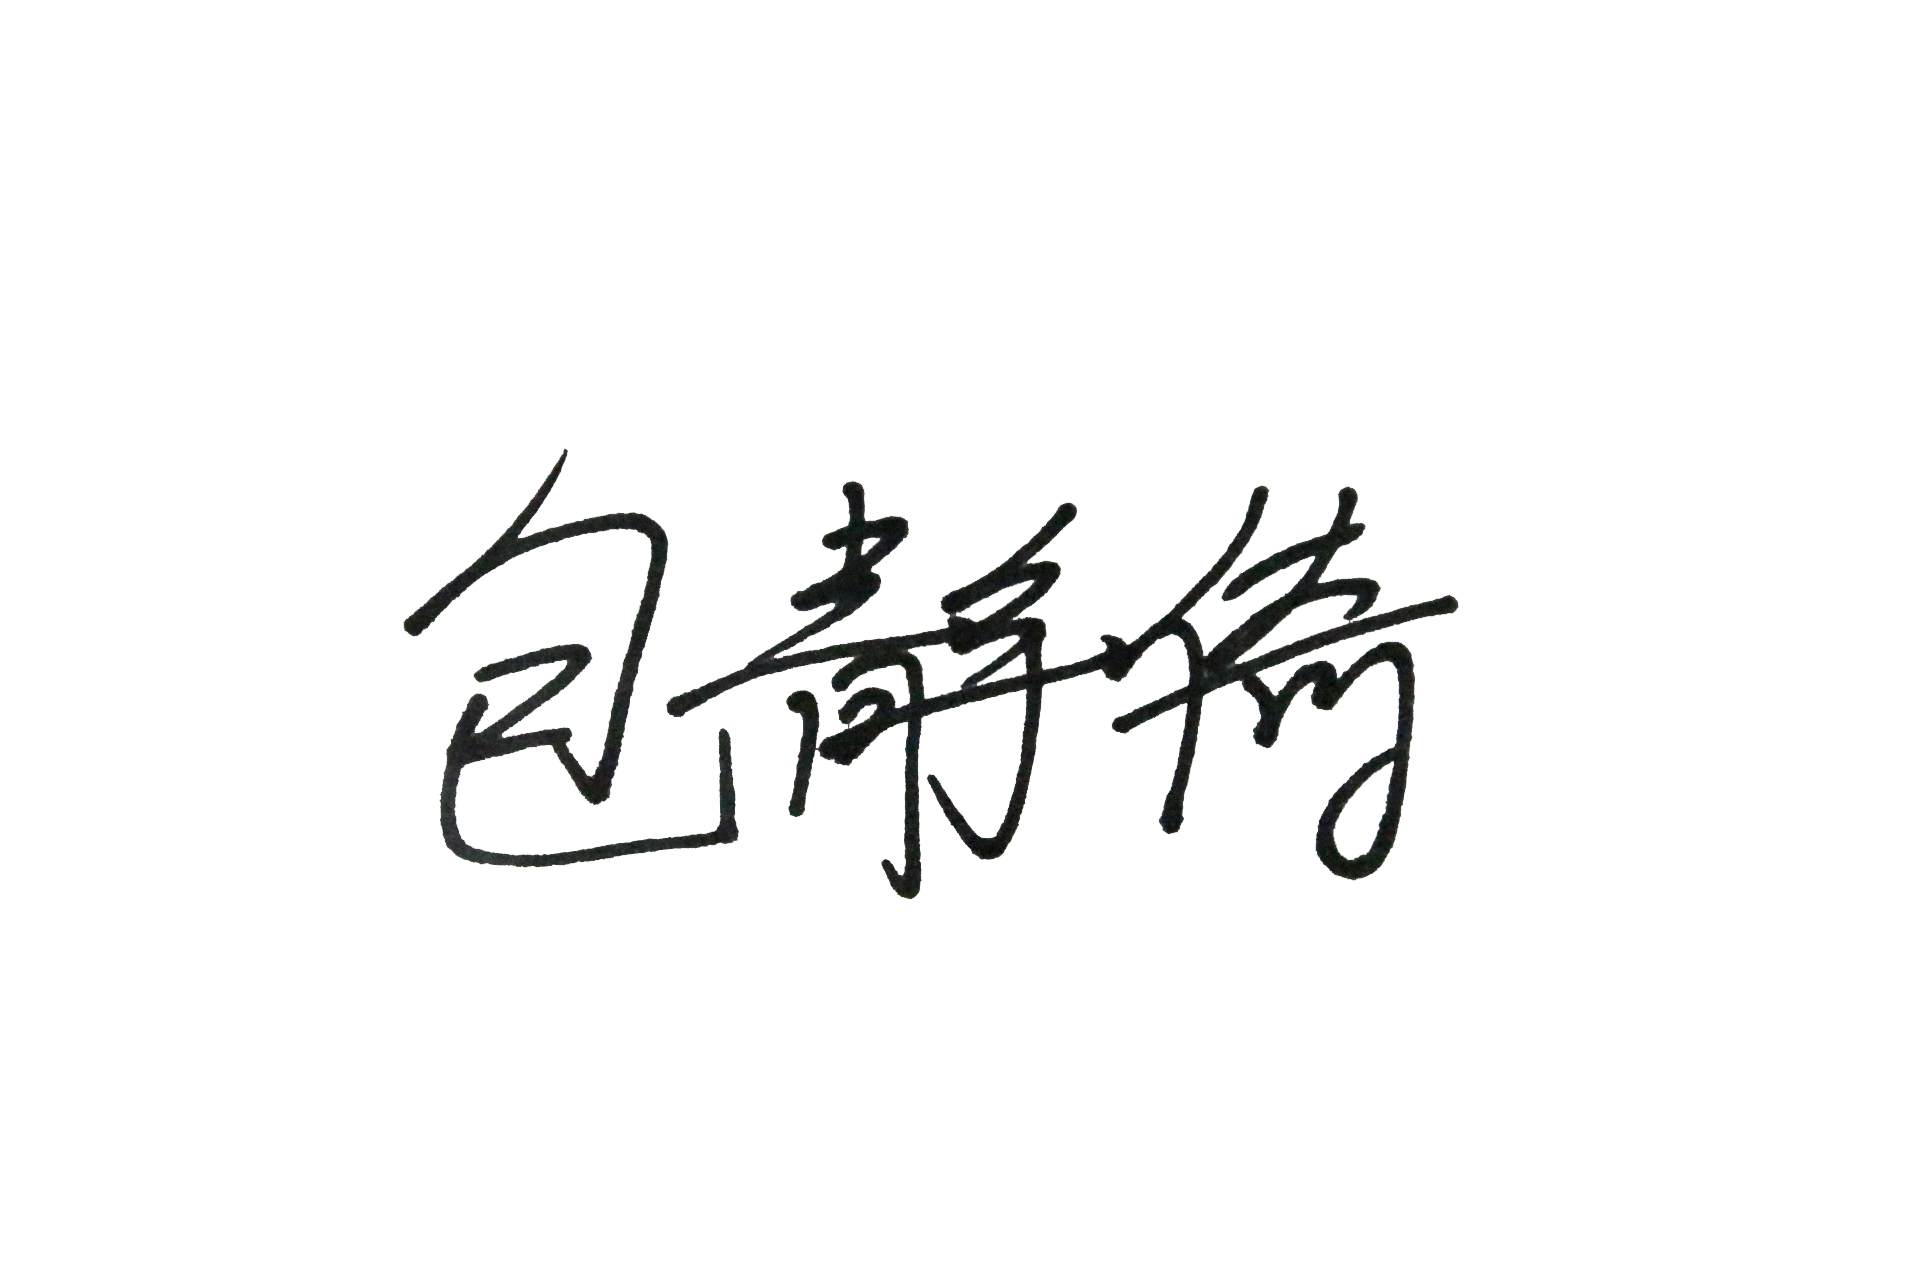 包静倚